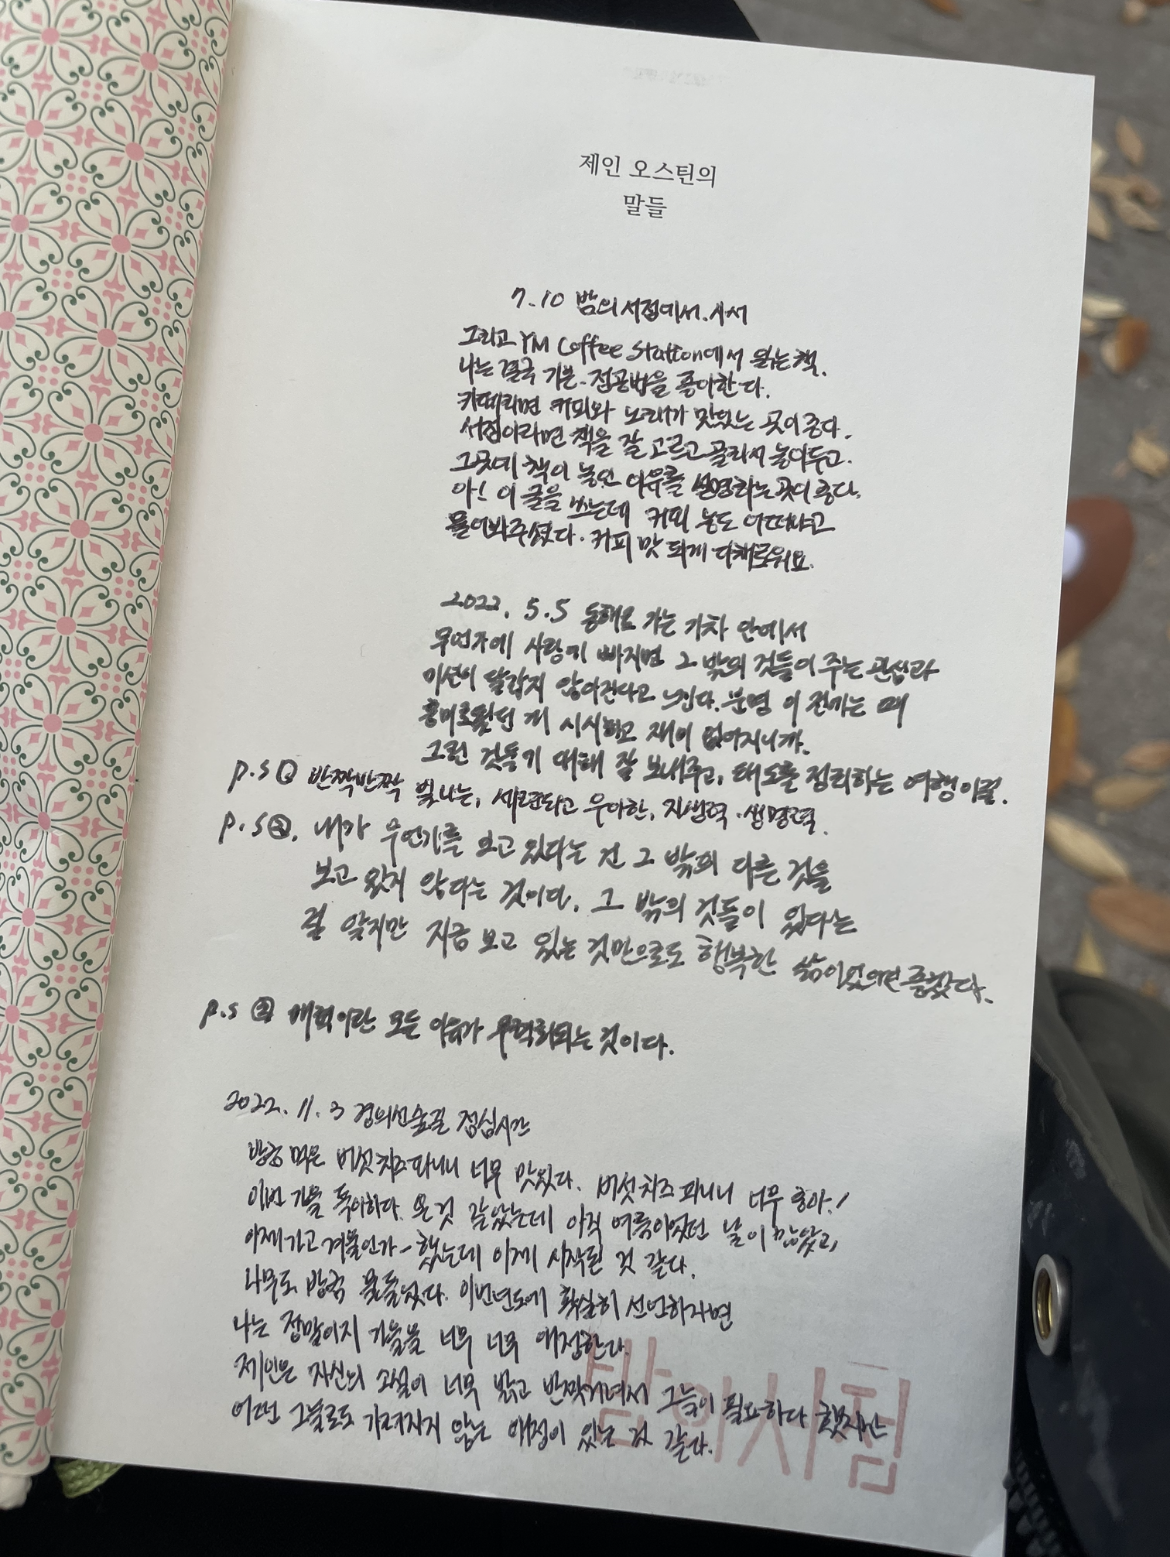 제인 오스틴의
말들
7.10 밤의서점에서. 사서
그리고 YM Coffee Station에서 읽는 책.
나는 결국 기본. 정공법을 좋아한다.
카페라면 커피와 노래가 맛있는 곳이 좋다.
서점이라면 책을 잘 고르고 골라서 놓아두고.
그곳에 책이 놓인 이유를 설명하는 곳이 좋다.
아! 이 글을 쓰는데 커피 농도 어떠냐고
물어봐주셨다. 커피 맛 되게 다채로워요.
2022. 5.5 동해로 가는 기차 안에서
무언가에 사랑에 빠지면 그 밖의 것들이 주는 관심과
미션이 달갑지 않아진다고 느낀다. 분명 이 전까는 때
흥미로웠던 게 시시하고 재미 없어지니까.
그런 것들에 대해 잘 보내주고, 태도를 정리하는 여행이길.
p.s ① 반짝반짝 빛나는, 세련되고 우아한, 자생력·생명력.
p.s ②. 내가 무언가를 보고 있다는 건 그 밖의 다른 것을
보고 있지 않다는 것이다. 그 밖의 것들이 있다는
걸 알지만 지금 보고 있는 것만으로도 행복한 삶이었으면 좋겠다.
p.s ③ 매혹이란 모든 이유가 무력화되는 것이다.
2022. 11. 3 경의선숲길 점심시간
방금 먹은 버섯치즈파니니 너무 맛있다. 버섯치즈 파니니 너무 좋아!
이번 가을 독아하다. 온 것 같았는데 아직 여름이었던 날이 많았고,
이제 가고 겨울인가~ 했는데 이제 시작된 것 같다.
나무도 방금 물들었다. 이번년도에 확실히 선언하자면
나는 정말이지 가을을 너무 너무 애정한다.
제인은 자신의 소설이 너무 밝고 반짝거려서 그늘이 필요하다 했지만
어떤 그늘로도 가려지지 않는 애정이 있는 것 같다.
밤의서점